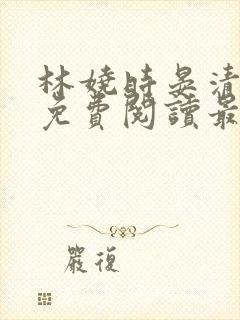 林嬈時晏清
免費閱讀最
嚴復